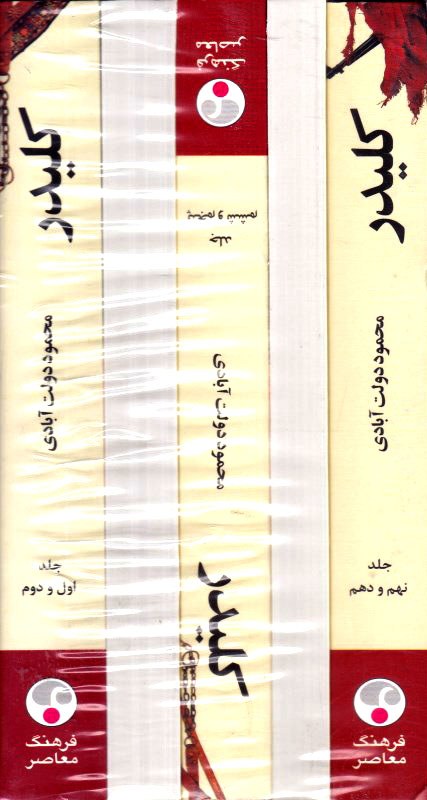 کلیدر
محمود دولت آبادی
جلد
نهم و دهم
فرهنگ
معاصر
فرهنگ
معاصر
جلد
پنجم و ششم
محمود دولت آبادی
کلیدر
کلیدر
محمود دولت آبادی
جلد
اول و دوم
فرهنگ
معاصر